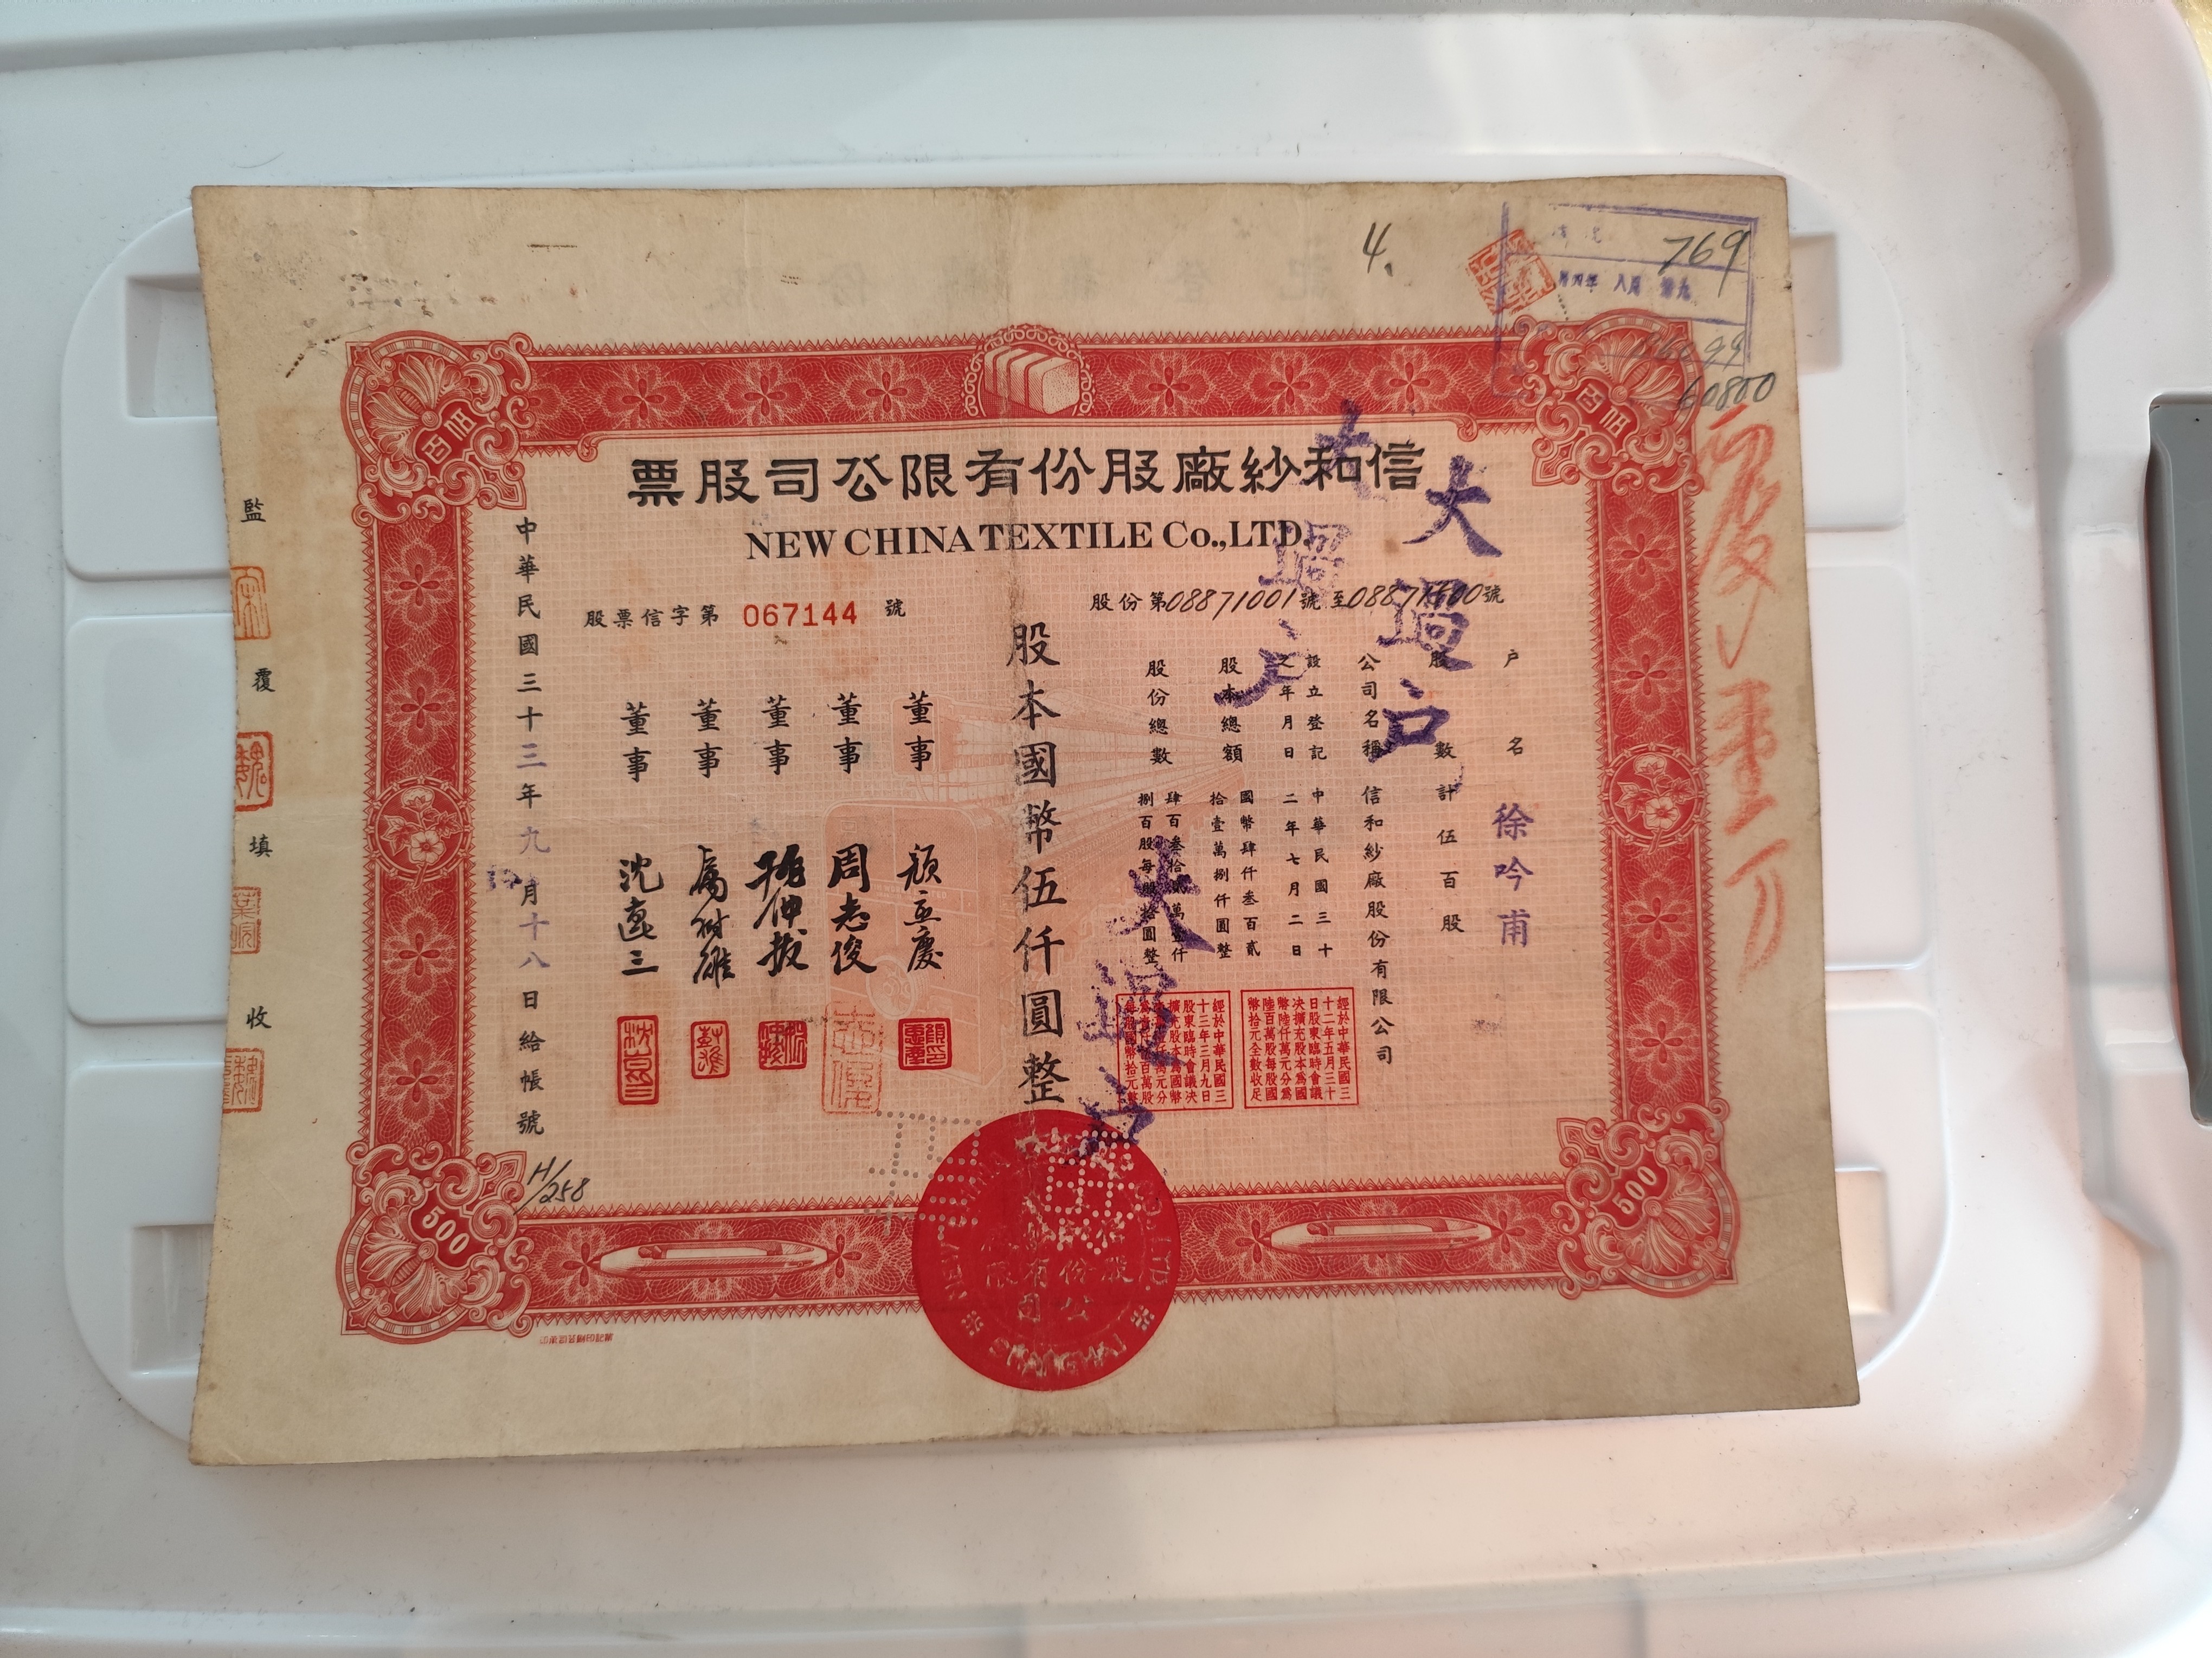 4.
769
60800
信和紗廠股份有限公司股票
NEW CHINA TEXTILE Co.,LTD.
股份第08871001號至08871500號
股票信字第 067144 號
戶名 徐吟甫
股數計伍百股
公司名稱 信和紗廠股份有限公司
設立登記之年月日 中華民國三十二年七月二日
股本總額 國幣肆仟叁百貳拾壹萬捌仟圓整
股份總數 肆百叁拾貳萬壹仟捌百股每股拾圓整
經於中華民國三十二年五月三十日股東臨時會議決擴充股本為國幣陸仟萬元分為陸百萬股每股國幣拾元全數收足
股本國幣伍仟圓整
董事
董事 周志俊
董事
董事
董事 沈遠三
中華民國三十三年九月十八日給帳號
監 覆 填 收
大過戶
大過戶
大過戶
伍百
伍百
500
500
H/258